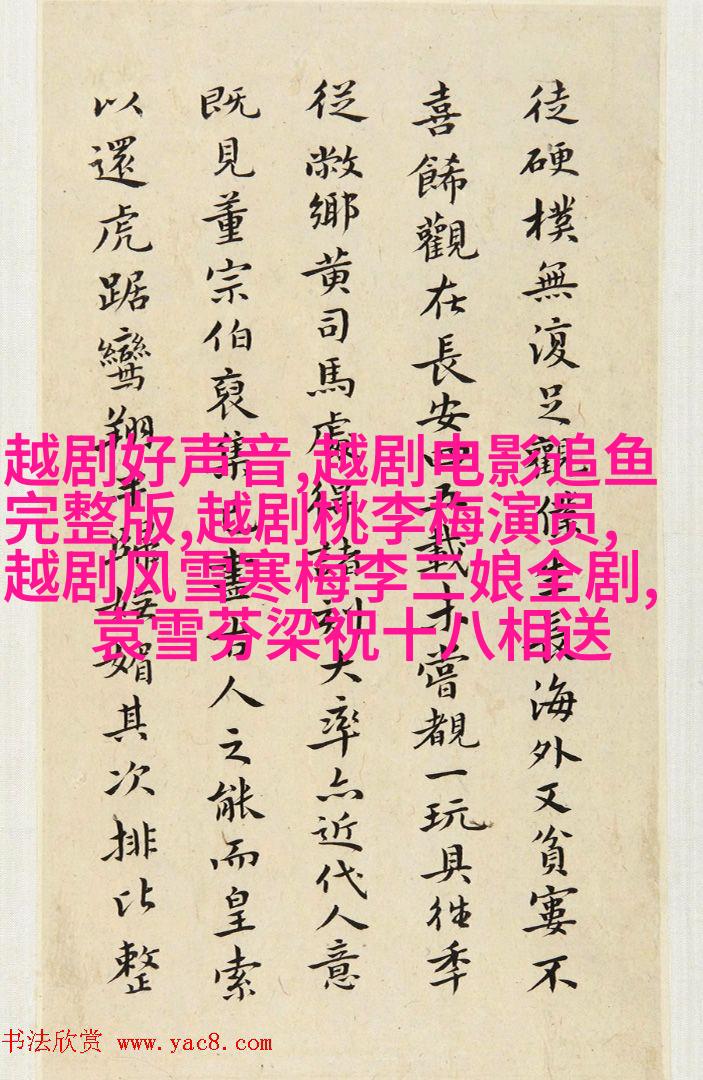 徒硬樸無復足觀僕生長海外又貧寠不
喜餙觀在長安四五載才嘗覩一玩具往季
從敝鄉黄司馬處得諸刻大率亦近代人意
既見董宗伯裒集盡古人之能而皇索
以還虎踞鸞翔嫵媚其次排比整
越剧好声音,越剧电影追鱼
完整版,越剧桃李梅演员,
越剧风雪寒梅李三娘全剧,
袁雪芬梁祝十八相送
书法欣赏 www.yac8.com